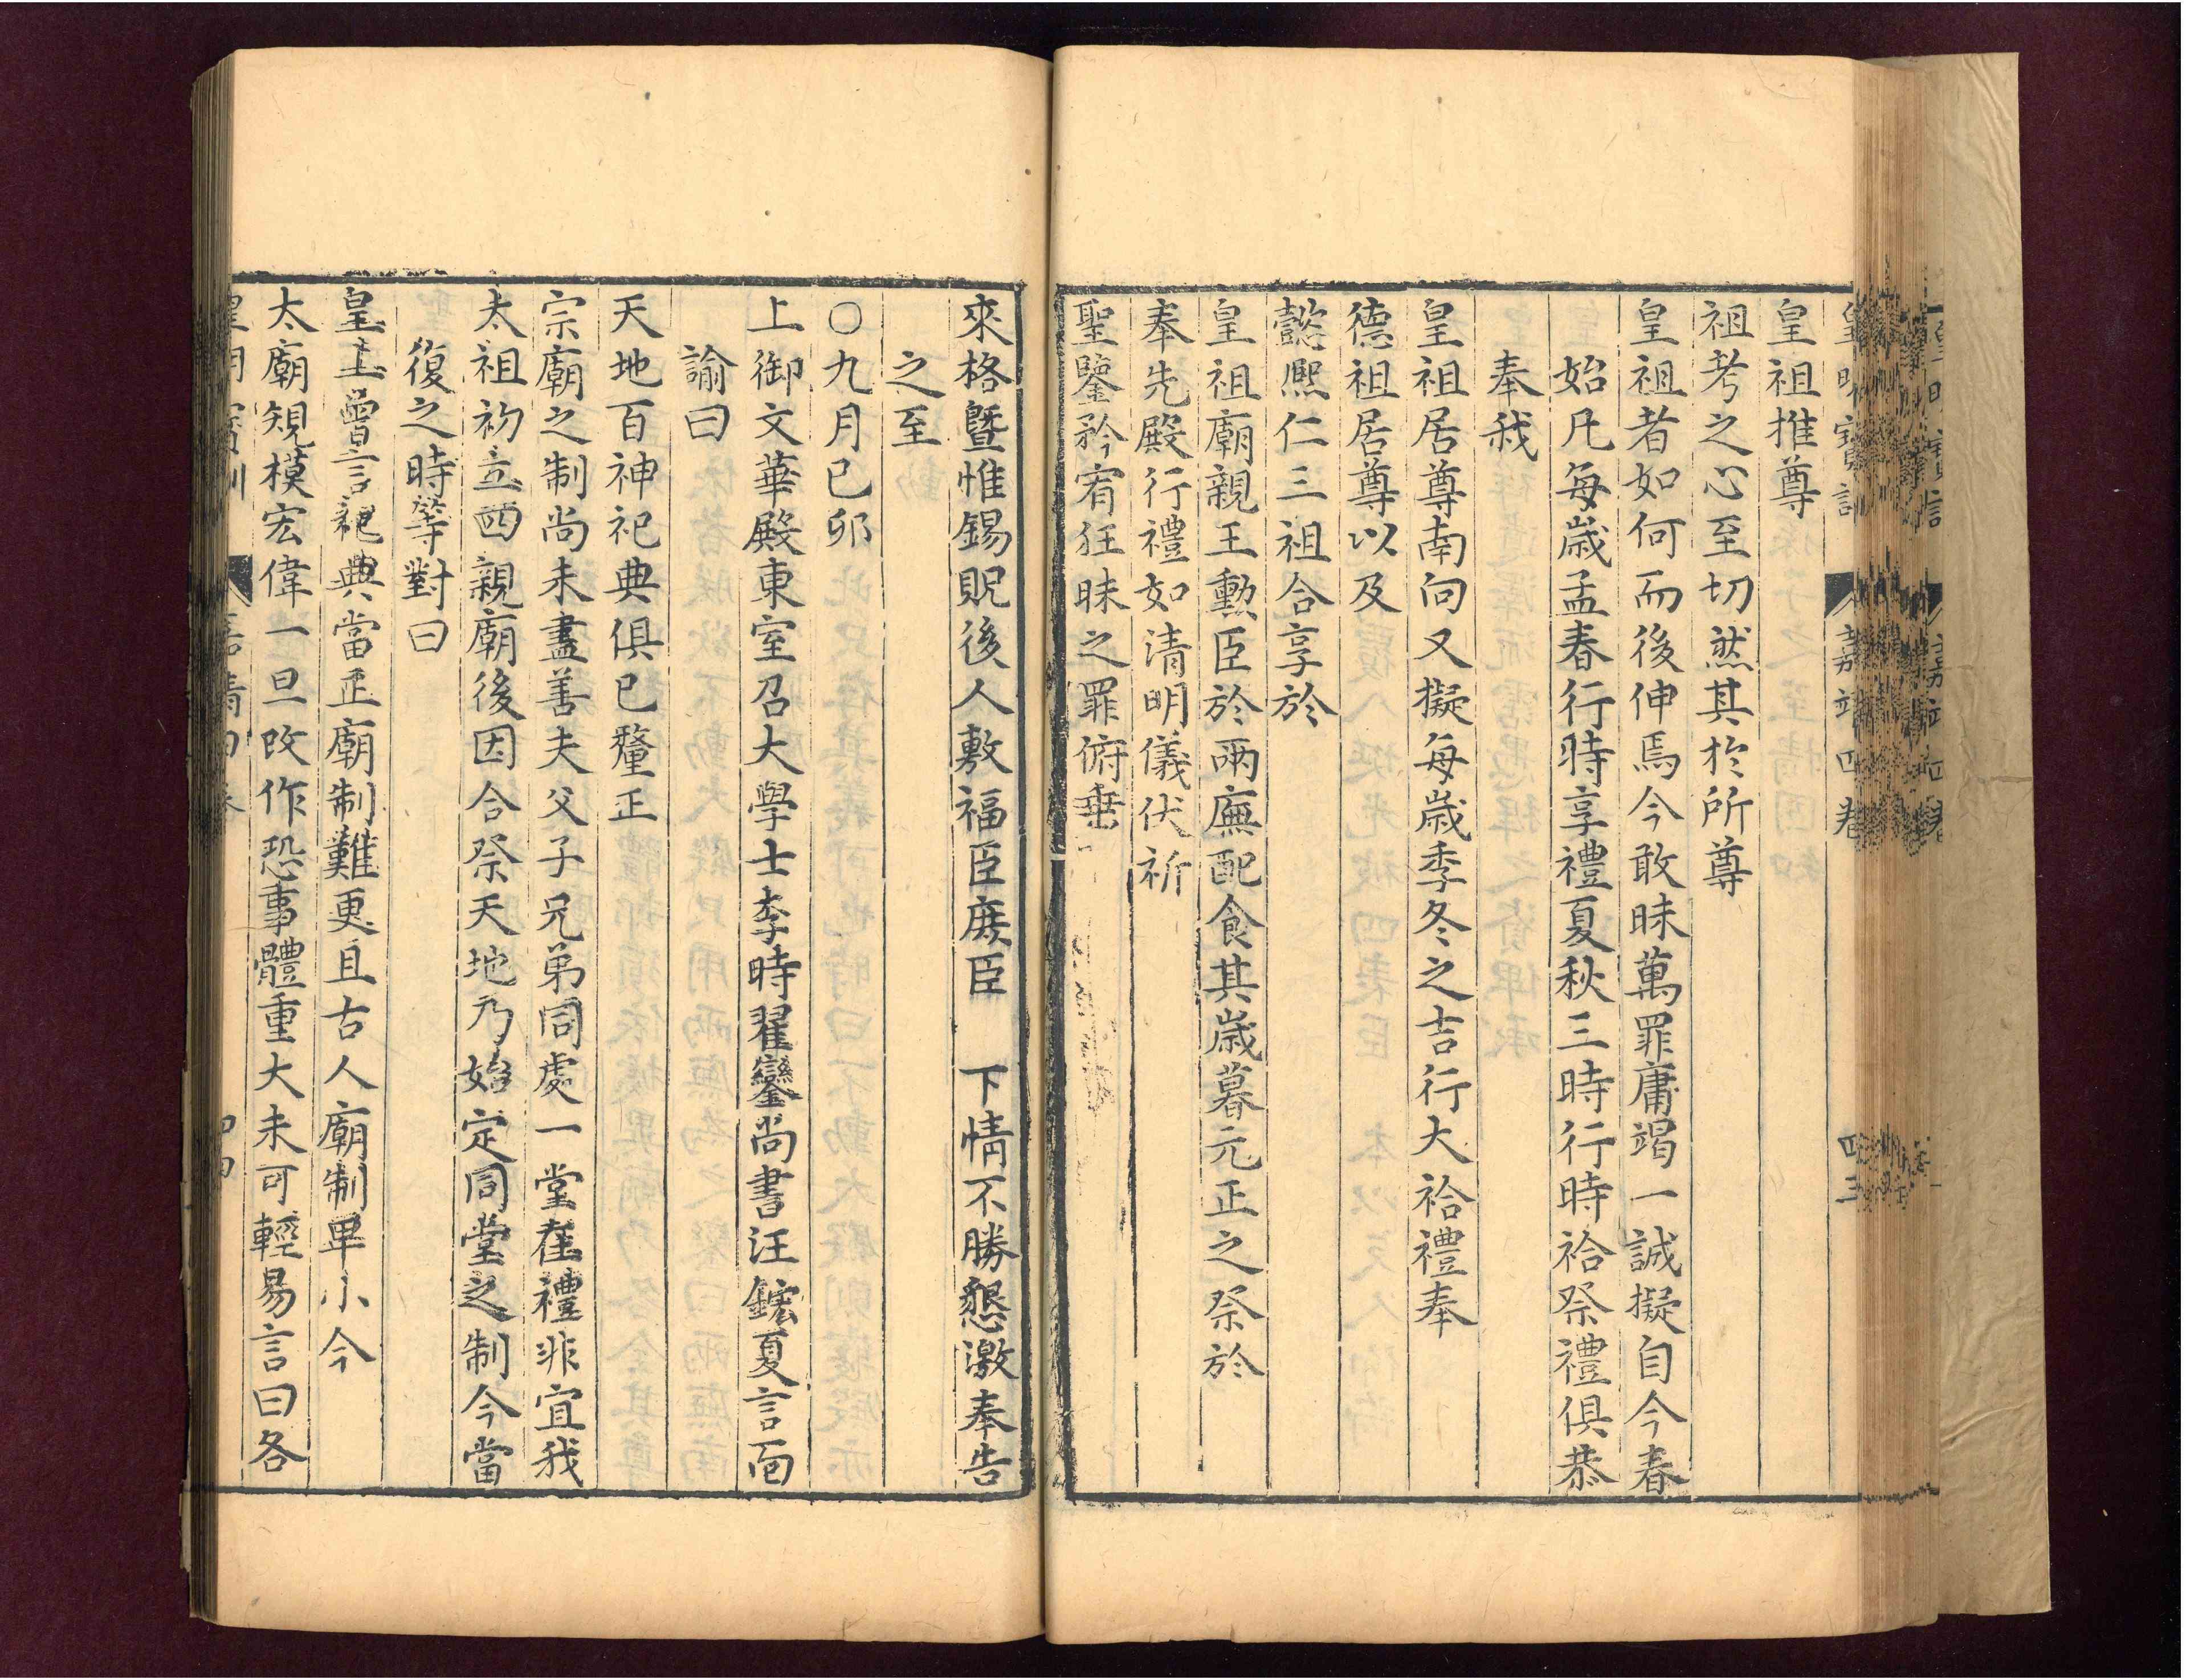 皇明寶訓 嘉靖四卷 四三
皇祖推尊
祖考之心至切然其於所尊
皇祖者如何而後伸焉今敢昧萬罪庸竭一誠擬自今春
始凡每歲孟春行時享禮夏秋三時行時祫祭禮俱恭
奉我
皇祖居尊南向又擬每歲季冬之吉行大祫禮奉
德祖居尊以及
懿熙仁三祖合享於
皇祖廟親王勳臣於兩廡配食其歲暮元正之祭於
奉先殿行禮如清明儀伏祈
聖鑒矜宥狂昧之罪俯垂
來格暨惟錫貺後人敷福臣庶臣 下情不勝懇激奉告
之至
○九月已卯
上御文華殿東室召大學士李時翟鑾尚書汪鋐夏言面
諭曰
天地百神祀典俱已釐正
宗廟之制尚未盡善夫父子兄弟同處一堂在禮非宜我
太祖初立四親廟後因合祭天地乃始定同堂之制今當
復之時等對曰
皇上曾言祀典當正廟制難更且古人廟制卑小今
太廟規模宏偉一旦改作恐事體重大未可輕易言曰各